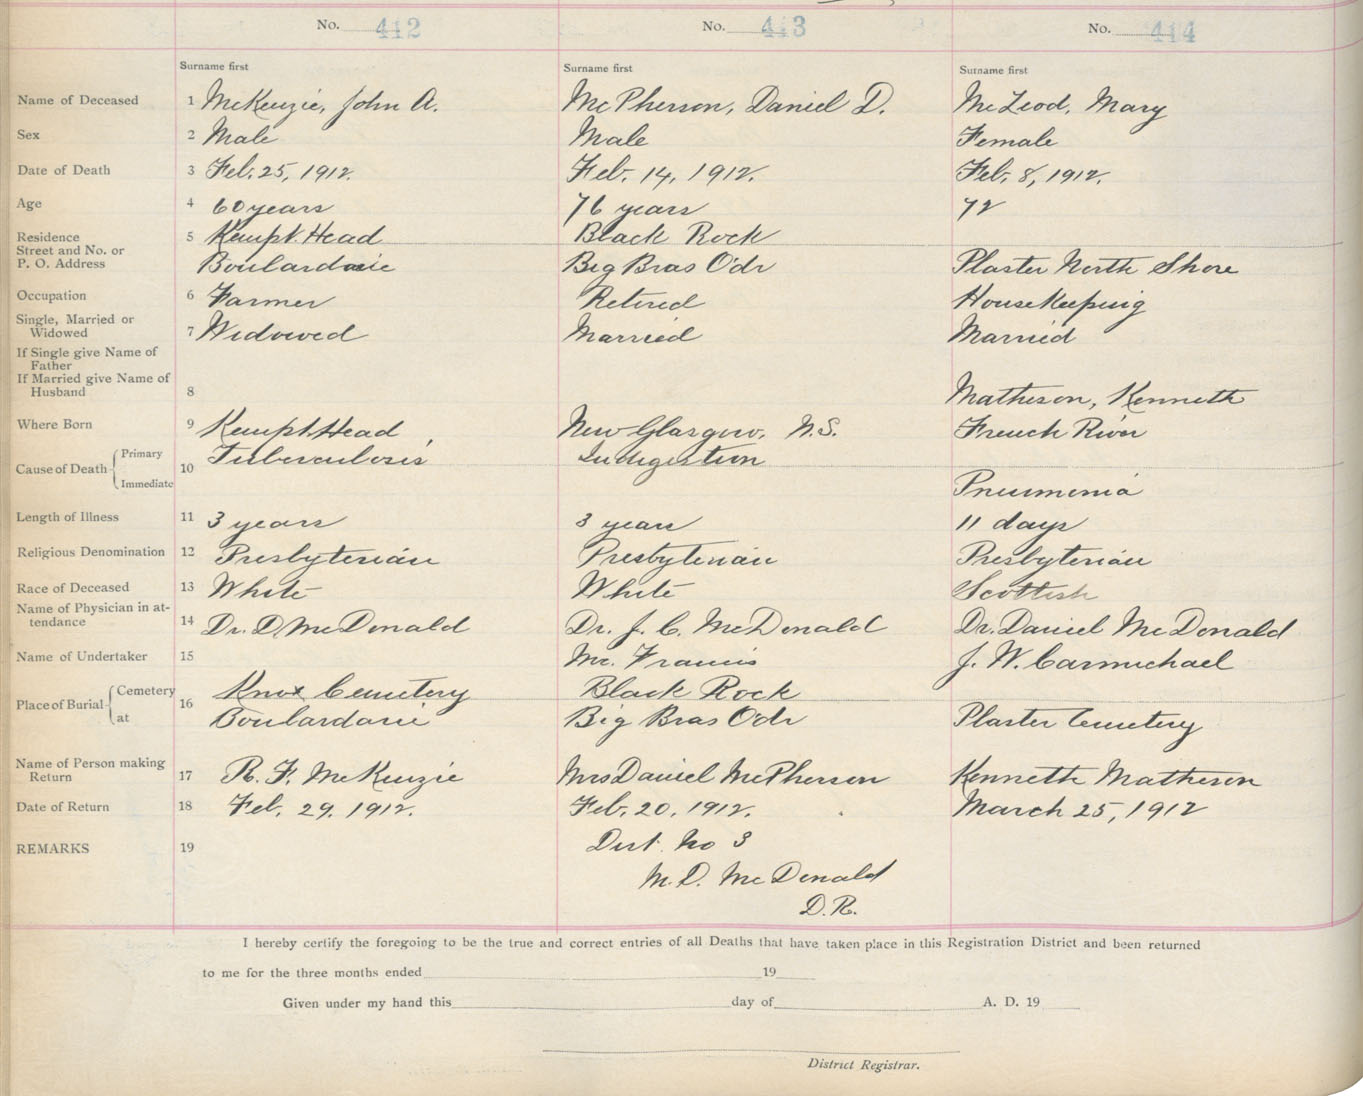 No. 412 No. 443 No. 414
Surname first Surname first Surname first
Name of Deceased 1 McKenzie, John A. McPherson, Daniel D. McLeod, Mary
Sex 2 Male Male Female
Date of Death 3 Feb. 25, 1912. Feb. 14, 1912. Feb. 8, 1912.
Age 4 60 years 76 years 72
Residence 5 Kempt Head Black Rock
Street and No. or
P. O. Address Boulardarie Big Bras O'dr Plaster North Shore
Occupation 6 Farmer Retired Housekeeping
Single, Married or
Widowed 7 Widowed Married Married
If Single give Name of
Father
If Married give Name of
Husband 8 Matheson, Kenneth
Where Born 9 Kempt Head New Glasgow, N.S. French River
Cause of Death Primary 10 Tuberculosis Indigestion
Immediate Pneumonia
Length of Illness 11 3 years 3 years 11 days
Religious Denomination 12 Presbyterian Presbyterian Presbyterian
Race of Deceased 13 White White Scottish
Name of Physician in at-
tendance 14 Dr. D. McDonald Dr. J. C. McDonald Dr. Daniel McDonald
Name of Undertaker 15 Mr. Francis J. W. Carmichael
Place of Burial Cemetery 16 Knox Cemetery Black Rock
at Boulardarie Big Bras O'dr Plaster Cemetery
Name of Person making
Return 17 R. F. McKenzie Mrs Daniel McPherson Kenneth Matheson
Date of Return 18 Feb. 29, 1912. Feb. 20, 1912. March 25, 1912
REMARKS 19 Dist. No 3
M. D. McDonald
D.R.
I hereby certify the foregoing to be the true and correct entries of all Deaths that have taken place in this Registration District and been returned
to me for the three months ended 19
Given under my hand this day of A. D. 19
District Registrar.